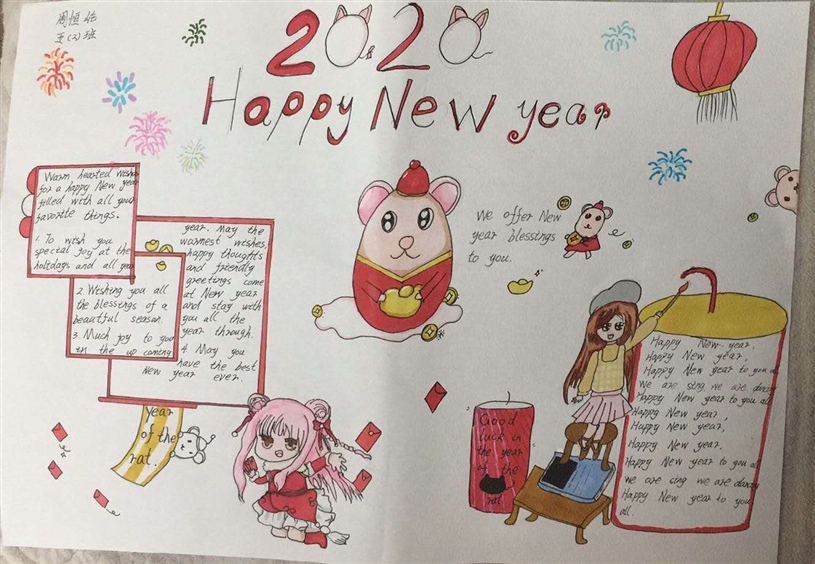 周恒
五(2)班
2020
Happy New year
Warm hearted wishes
for a happy New year
filled with all your
favorite things.
1. To wish you
special joy at the
holidays and all year
2. Wishing you all
the blessings of a
beautiful season.
3. Much joy to you
in the up coming
year. May the
warmest wishes,
happy thoughts
and friendly
greetings come
at New year
and stay with
you all the
year through.
4. May you
have the best
New year ever.
year
of the
rat.
We offer New
year blessings
to you.
Good
luck in
the year
of the
rat
Happy New year,
Happy New year,
Happy New year to you all
we are sing we are dancing
Happy New year to you all
Happy New year,
Happy New year,
Happy New year,
Happy New year to you all
we are sing we are dancing
Happy New year to you
all.